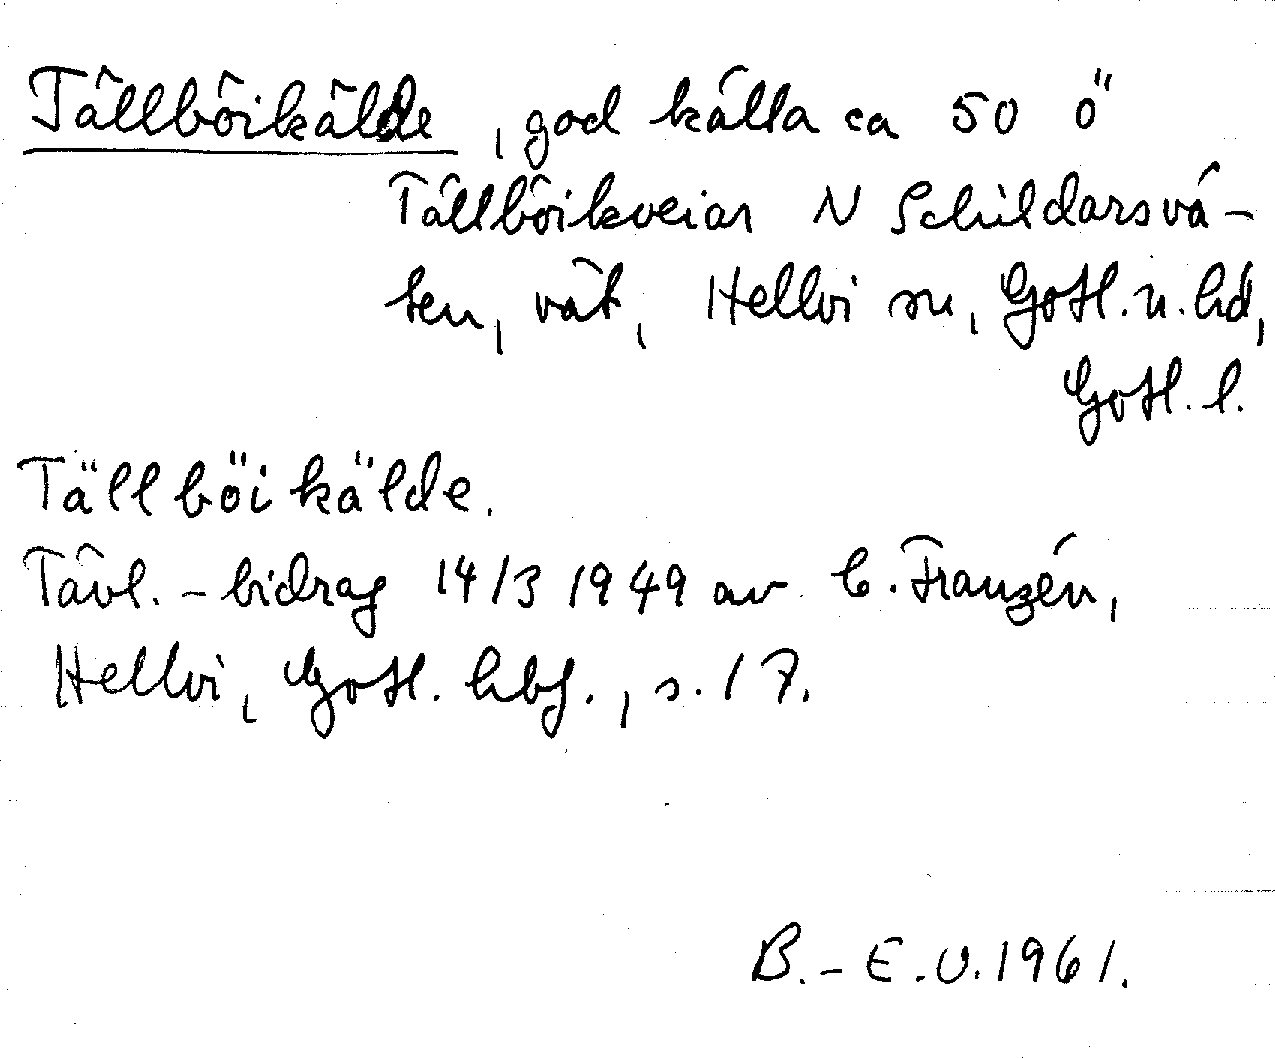 Tällböikälde, god källa ca 50 ö
Tällböikveiar N Schildarsvä-
ten, vät, Hellvi sn, Gotl. n. hd,
Gotl. l.
Tällböikälde.
Tävl.-bidrag 14/3 1949 av C. Franzén,
Hellvi, Gotl. hbf., s. 17.
B.-E.U. 1961.